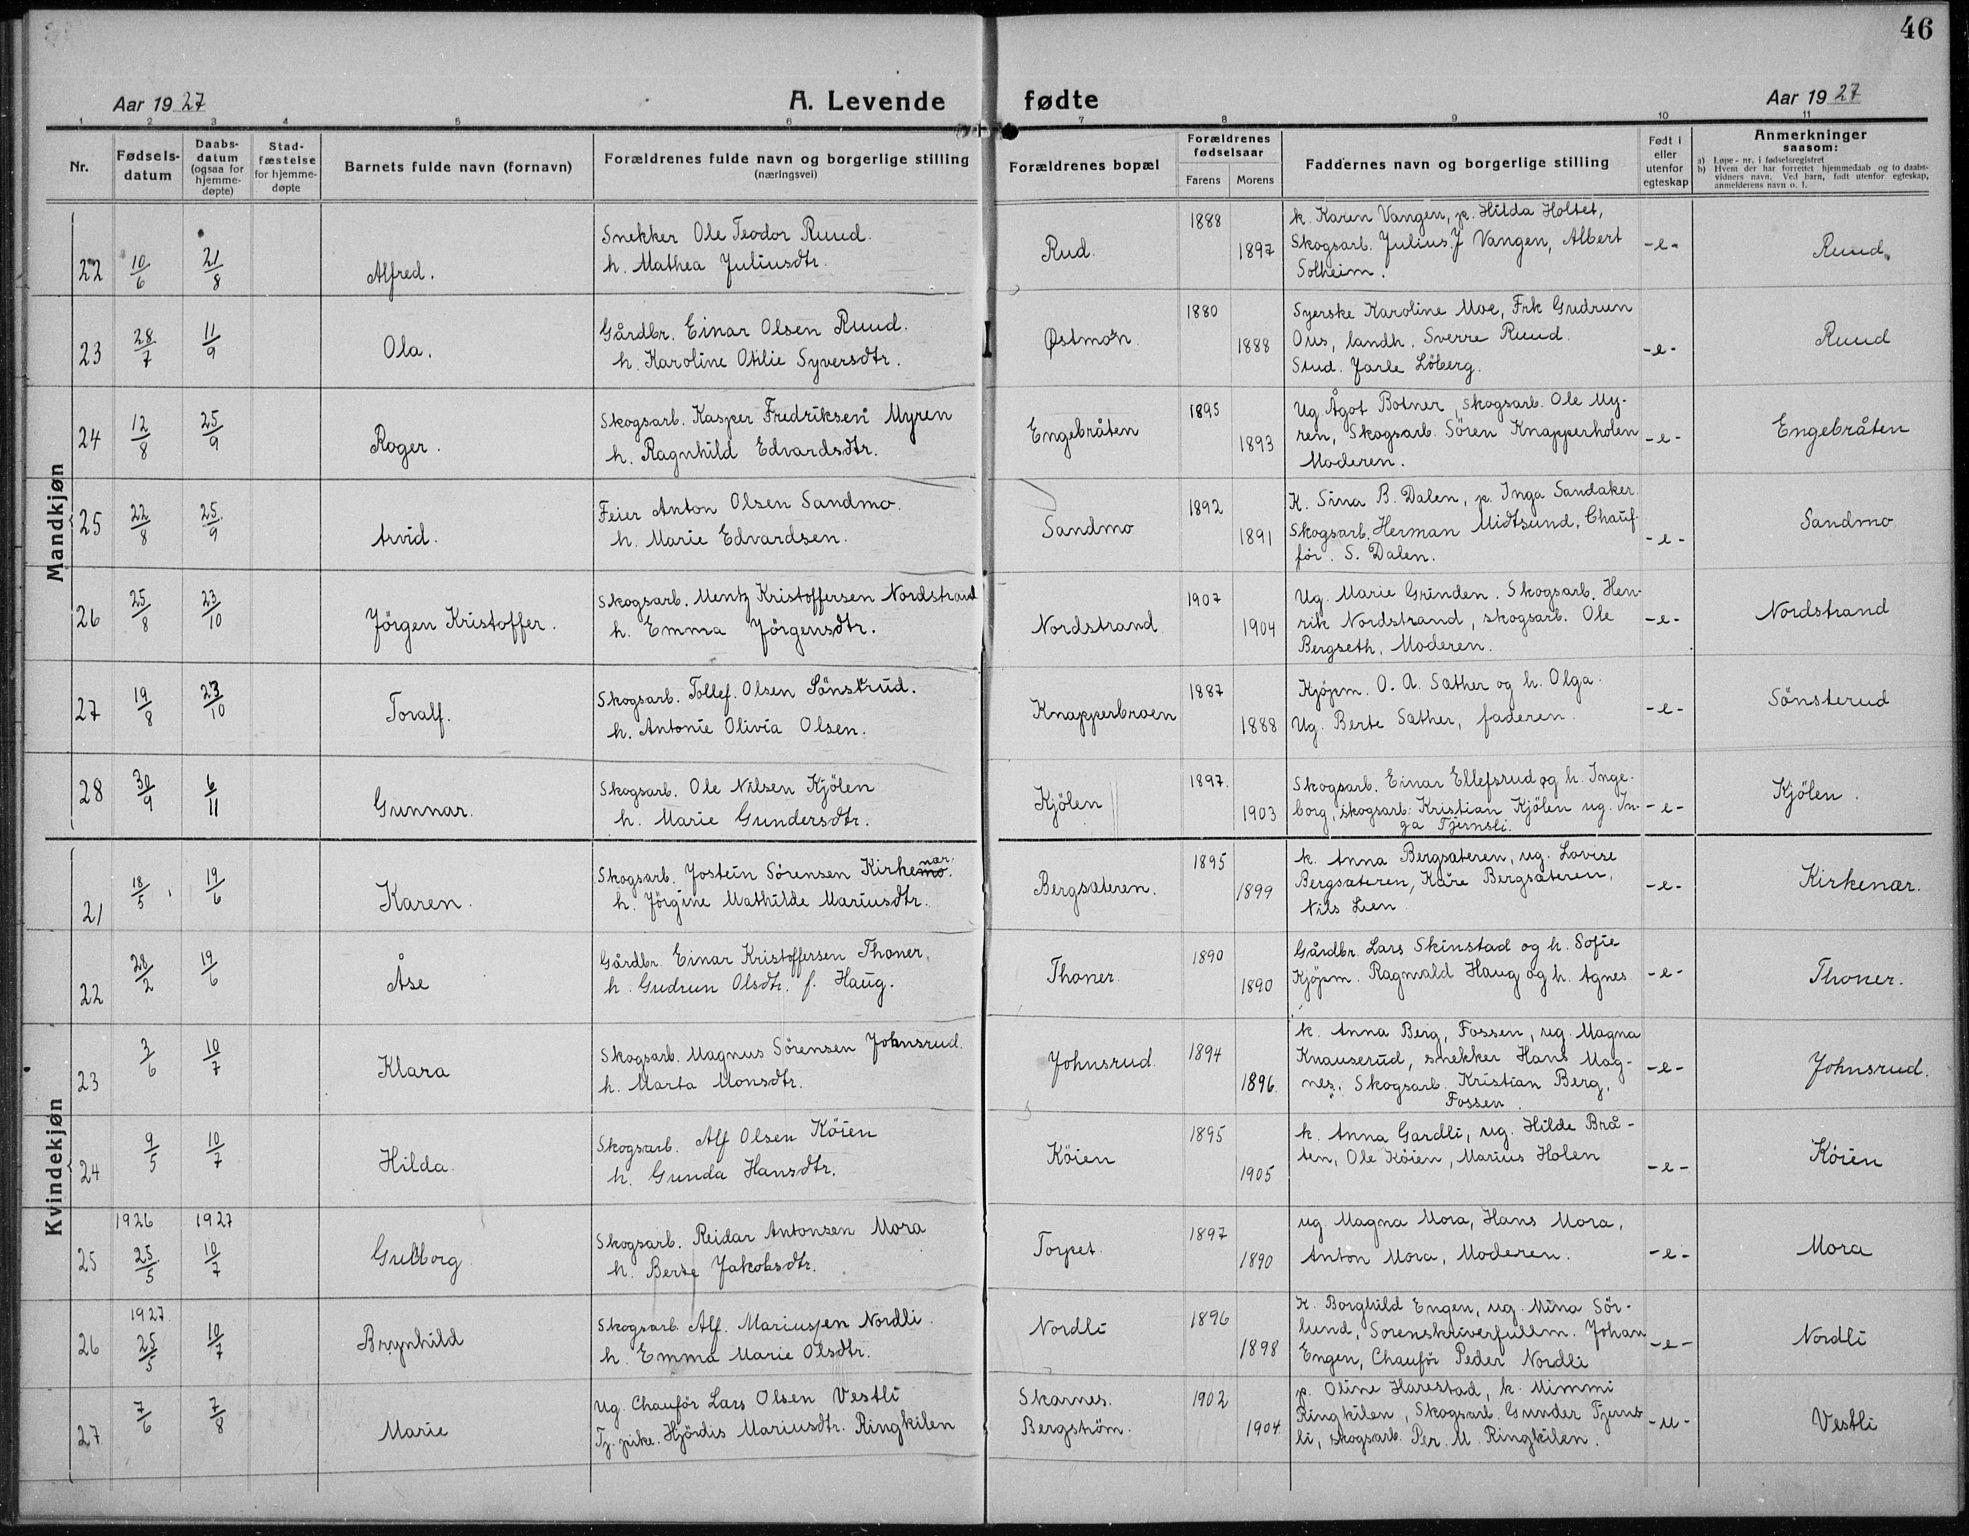 46
Aar 1927 A. Levende fødte Aar 1927
1 2 3 4 5 6 7 8 9 10 11
Nr. Fødselsdatum Daabsdatum (ogsaa for hjemmedøpte) Stadfæstelse for hjemmedøpte Barnets fulde navn (fornavn) Forældrenes fulde navn og borgerlige stilling (næringsvei) Forældrenes bopæl Forældrenes fødselsaar Farens Morens Faddernes navn og borgerlige stilling Født i eller utenfor egteskap Anmerkninger saasom:
a) Løpe-nr. i fødselsregistret
b) Hvem der har forrettet hjemmedaab og to daabsvidners navn. Ved barn, født utenfor egteskap, anmelderens navn o. l.
Mandkjøn
22 10/6 21/8 Alfred. Snekker Ole Teodor Ruud.
h. Mathea Juliusdtr. Rud. 1888 1897 k. Karen Vangen, p. Hilda Holtet,
Skogsarb. Julius J Vangen, Albert
Solheim. -e- Ruud.
23 28/7 11/9 Ola. Gårdbr. Einar Olsen Ruud.
h. Karoline Otilie Syversdtr. Østmo'n. 1880 1888 Syerske Karoline Moe, Frk Gudrun
Ous, landh. Sverre Ruud.
Stud. Jarle Löberg. -e- Ruud
24 12/8 25/9 Roger. Skogsarb. Kasper Fredriksen Myren
h. Ragnhild Edvardsdtr. Engebråten 1895 1893 Ug. Ågot Botner, Skogsarb. Ole My-
ren, Skogsarb. Sören Knapperholen
Moderen. -e- Engebråten
25 22/8 25/9 Arvid. Feier Anton Olsen Sandmo.
h. Marie Edvardsen. Sandmo 1892 1891 K. Sina B. Dalen, p. Inga Sandaker.
Skogsarb. Herman Midtsund, Chauf-
för. S. Dalen. -e- Sandmo
26 25/8 23/10 Jörgen Kristoffer. Skogsarb. Mentz Kristoffersen Nordstrand
h. Emma Jörgensdtr. Nordstrand. 1907 1904 Ug. Marie Grinden. Skogsarb. Hen-
rik Nordstrand, skogsarb. Ole
Bergseth, Moderen. -e- Nordstrand
27 19/8 23/10 Toralf. Skogsarb. Tollef. Olsen Sönstrud.
h. Antonie Olivia Olsen. Knapperbroen 1887 1888 Kjöpm. O. A. Sæther og h. Olga.
Ug. Berte Sæther, faderen. -e- Sönsterud
28 30/9 6/11 Gunnar. Skogsarb. Ole Nilsen Kjölen
h. Marie Gundersdtr. Kjölen 1897. 1903 Skogsarb. Einar Ellefsrud og h. Inge-
borg, skogsarb. Kristian Kjölen ug. In-
ga Tjernsli. -e- Kjölen.
Kvindekjøn
21 18/5 19/6 Karen. Skogsarb. Jostein Sörensen Kirkemo nær.
h. Jörgine Mathilde Mariusdtr. Bergsæteren. 1895 1899 k. Anna Bergsæteren, ug. Lovise
Bergsæteren, Kåre Bergsæteren,
Nils Lien -e- Kirkenær.
22 28/2 19/6 Åse Gårdbr. Einar Kristoffersen Thoner,
h. Gudrun Olsdtr. f. Haug. Thoner. 1890 1890 Gårdbr. Lars Skinstad og h. Sofie
Kjöpm. Ragnvald Haug og h. Agnes -e- Thoner.
23 3/6 10/7 Klara Skogsarb. Magnus Sörensen Johnsrud.
h. Marta Monsdtr. Johnsrud. 1894 1896. k. Anna Berg, Fossen, ug. Magna
Knauserud, snekker Hans Mag-
nes, Skogsarb. Kristian Berg,
Fossen. -e- Johnsrud.
24 9/5 10/7 Hilda. Skogsarb. Alf Olsen Köien
h. Gunda Hansdtr. Köien 1895 1905 k. Anna Gardli, ug. Hilde Brå-
ten, Ole Köien, Marius Holen -e- Köien
25 1926 25/5 1927 10/7 Gulborg Skogsarb. Reidar Antonsen Mora
h. Berte Jakobsdtr. Torpet. 1897 1890 ug. Magna Mora, Hans Mora,
Anton Mora, Moderen. -e- Mora
26 1927. 25/5 10/7 Brynhild Skogsarb. Alf. Mariussen Nordli.
h. Emma Marie Olsdtr. Nordli 1896 1898 K. Borghild Engen, ug. Mina Sör-
lund, Sorenskriverfullm. Johan
Engen, Chauför Peder Nordli -e- Nordli
27 7/6 7/8 Marie Ug. Chauför Lars Olsen Vestli
Tj. pike. Hjördis Mariusdtr. Ringkilen Skarnes.
Bergström. 1902 1904 p. Oline Harestad, k. Mimmi
Ringkilen, Skogsarb. Gunder Tjerns-
li, skogsarb. Per. M. Ringkilen. -u- Vestli